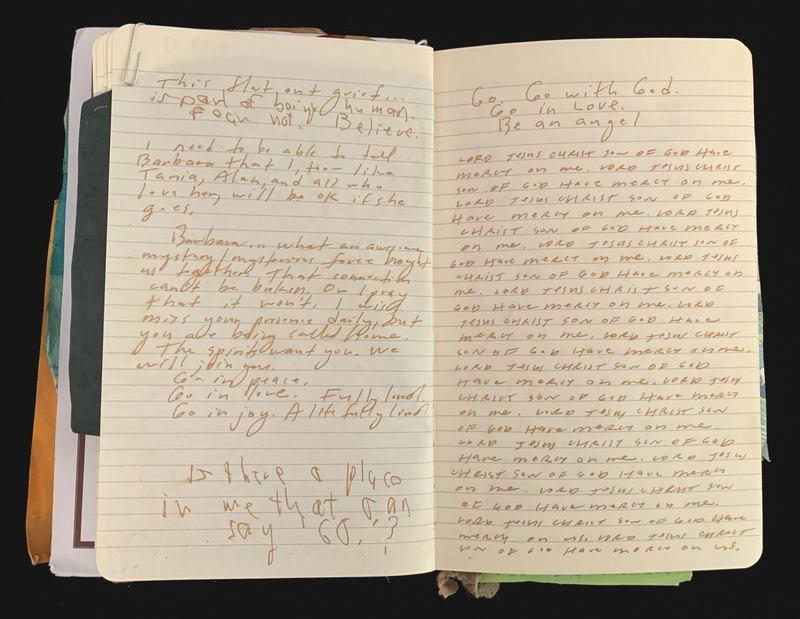 This flat out grief...
is part of being human.
Fear not. Believe.
I need to be able to tell
Barbara that I, too— like
Tania, Alan, and all who
love her, will be ok if she
goes.
Barbara, what an awesome
mystery/mysterious force brought
us together. That connection
can't be broken. Or I pray
that it won't. I will
miss your presence daily, but
you are being called Home.
The spirits want you. We
will join you.
Go in peace.
Go in love. Fully lived.
Go in joy. A life fully lived.
Is there a place
in me that can
say 'GO.'?
Go. Go with God.
Go in Love.
Be an angel
LORD JESUS CHRIST SON OF GOD Have
mercy on me. LORD JESUS CHRIST
SON OF GOD Have mercy on me.
LORD JESUS CHRIST SON OF GOD
Have mercy on me. LORD JESUS
CHRIST SON OF GOD Have mercy
on me. LORD JESUS CHRIST SON OF
GOD Have mercy on me. LORD JESUS
CHRIST SON OF GOD Have mercy on
me. LORD JESUS CHRIST SON OF
GOD Have mercy on me. LORD
JESUS CHRIST SON OF GOD Have
mercy on me. LORD JESUS CHRIST
SON OF GOD Have mercy on me.
LORD JESUS CHRIST SON OF GOD
Have mercy on me. LORD JESUS
CHRIST SON OF GOD Have mercy
on me. LORD JESUS CHRIST SON
OF GOD Have mercy on me.
LORD JESUS CHRIST SON OF GOD
Have mercy on me. LORD JESUS
CHRIST SON OF GOD Have mercy
on me. LORD JESUS CHRIST SON
OF GOD Have mercy on me.
LORD JESUS CHRIST SON OF GOD Have
mercy on us. LORD JESUS CHRIST
SON OF GOD Have mercy on us.